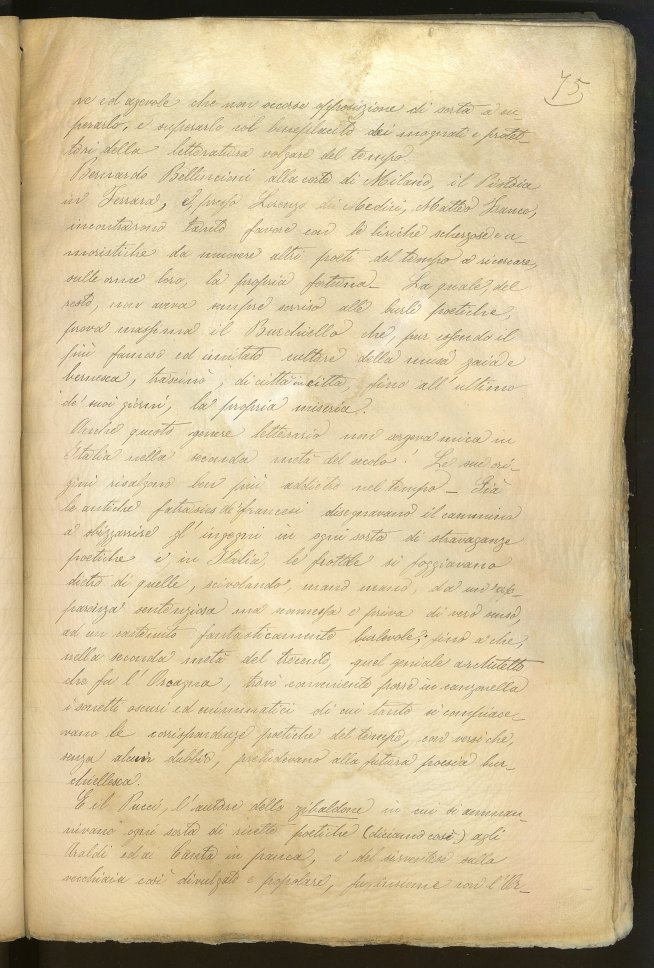 75
ve ed agevole che non occorse opposizione di sorta a su-
perarlo, e superarlo col beneplacito dei magnati e protet-
tori della letteratura volgare del tempo.
Bernardo Bellincioni alla corte di Milano, il Pistoia
in Ferrara, e, presso Lorenzo dei Medici, Matteo Franco,
incontrarono tanto favore con le liriche scherzose e u-
moristiche da muovere altri poeti del tempo a ricercare,
sulle orme loro, la propria fortuna_ La quale, del
resto, non aveva sempre sorriso alle burle poetiche;
prova massima il Burchiello che, pur essendo il
più famoso ed imitato cultore della musa gaia e
bernesca, trascinò, di città in città, fino all'ultimo
de' suoi giorni, la propria miseria.
Anche questo genere letterario non sorgeva mica in
Italia nella seconda metà del secolo! Le sue ori-
gini risalgono ben più addietro nel tempo_ Già
le antiche fatrasies de' francesi disegnavano il cammino
a sbizzarrire gl'ingegni in ogni sorta di stravaganze
poetiche e in Italia, le frottole si foggiavano
dietro di quelle, scivolando, mano mano, da un'ap-
parenza sentenziosa ma sconnessa e priva di vero senso,
ad un contenuto fantasticamente burlevole; sino a che,
nella seconda metà del trecento, quel geniale architetto
che fu l'Orcagna, trovò conveniente porre in canzonella
i sonetti oscuri ed enimmatici di cui tanto si compiace-
vano le corrispondenze poetiche del tempo, con versi che,
senza alcun dubbio, preludevano alla futura poesia bur-
chiellesca.
E il Pucci, l'autore dello zibaldone in cui si amman-
nivano ogni sorta di ricette poetiche (diciamo così) agli
Araldi ed ai Canta in panca, e del sirventese sulla
vecchiaia così divulgato e popolare, fu insieme con l'Or-